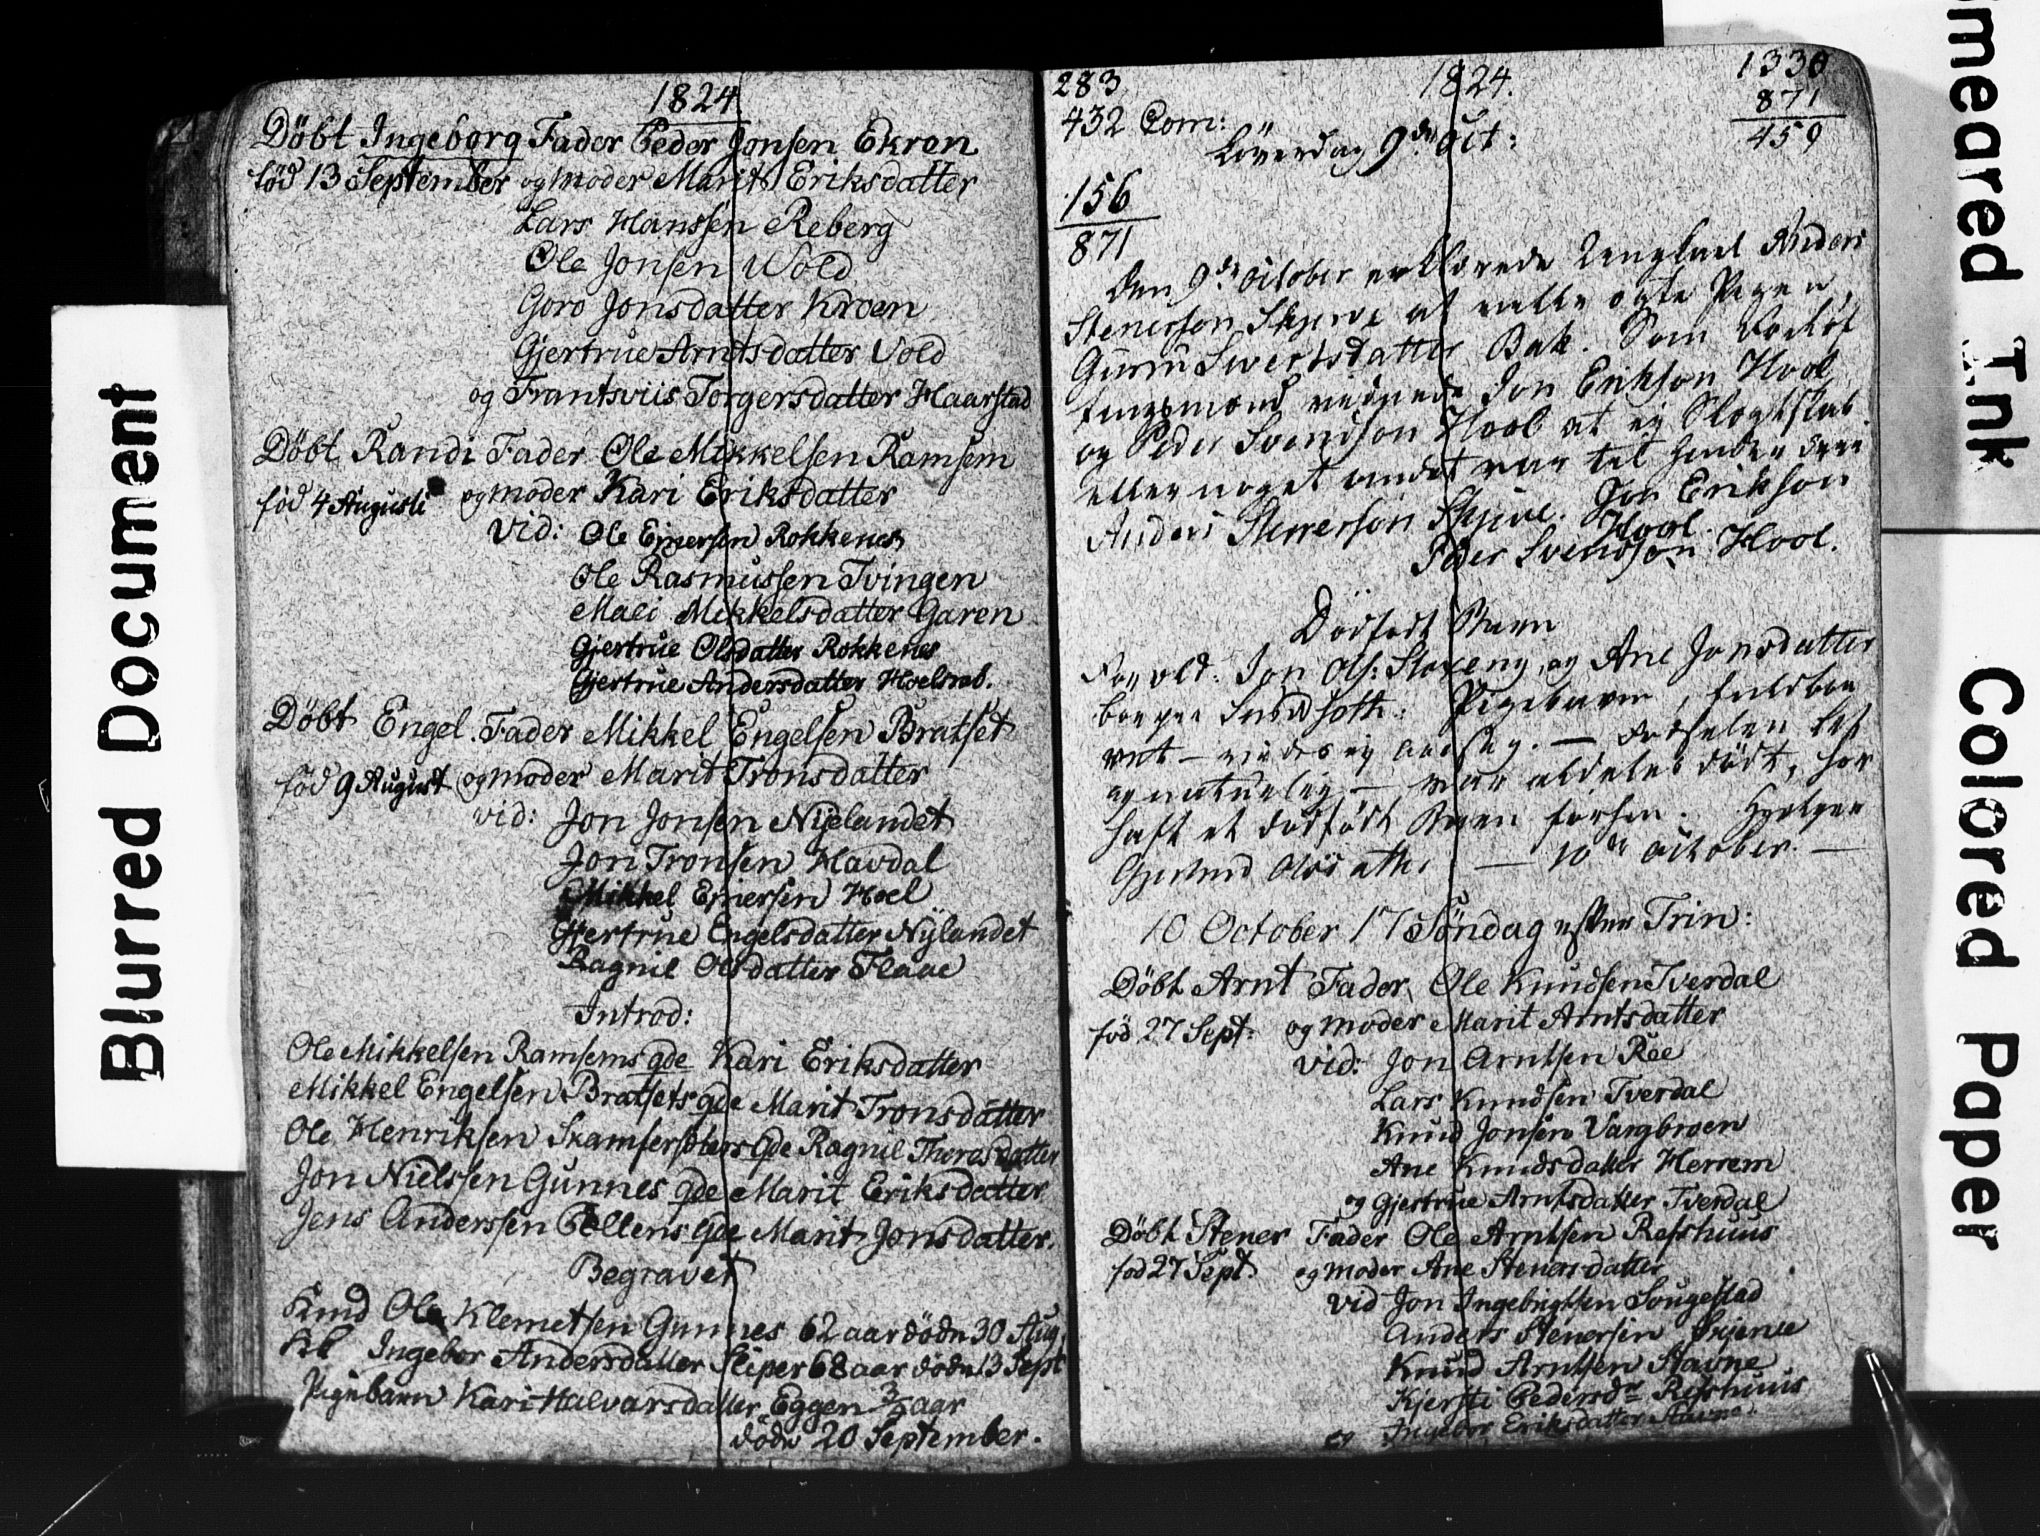 1824
Döbt Ingeborg Fader Peder Jonsen Ekron
föd 13 September og moder Marit Eriksdatter
Lars Hanssen Reberg
Ole Jonsen Wold
Goro Jonsdatter Kroen
Gjertrue Arntsdatter Vold
og Frantsviis Torgersdatter Haarstad
Döbt Randi Fader Ole Mikkelsen Ramsem
föd 4 Augusti og moder Kari Eriksdatter
Vid: Ole Ejnersen Rokkenes
Ole Rasmussen Tvingen
Mali Mikkelsdatter Garen
Gjertrue Olsdatter Rokkenes
Gjertrue Andersdatter Hoelsrab.
Döbt Engel. Fader Mikkel Engelsen Bratset
föd 9 August og moder Marit Tronsdatter
vid: Jon Jonsen Nyelandet
Jon Tronsen Havdal
Mikkel Ejnersen Hoel
Gjertrue Engelsdatter Nylandet
Ragnil Olsdatter Flaae
Introd:
Ole Mikkelsen Ramsems qde Kari Eriksdatter
Mikkel Engelsen Bratsets qde Marit Tronsdatter
Ole Henriksen Skamfersöters qde Ragnil Thoresdatter
Jon Nielssen Gunnes qde Marit Eriksdatter
Jens Anderssen qde Marit Jonsdatter.
Begravet
Knud Ole Klemetsen Gunnes 62 aar döde 30 Aug.
Ingebor Andersdatter Sliper 68 aar döde 13 Sept
Pigebarn Kari Halvarsdatter Eggen aar
döde 20 September.
283 1824. 1330
432 Com: 871
Löverdag 9de Oct: 459
156
871
Den 9de October erklærede Ungkarl Anders
Stenerson Skjeve at ville ægte Pigen,
Guruu Sivertsdatter Bak. Som Forlof
tingsmænd Jon Erikson Hool
og Peder Svendson Hool at ej Slægtskab
eller noget andet var til hinder deri
Anders Stenerson Skjeve. Jon Erikson
Hool.
Peder Svendson Hool.
Dödfödt Barn
Jon Ols: og Ane Jonsdatter
Pigebarn, fuldbaa
ret
og naturlig — var aldeles död,
haft et dödfödt Barn förhen.
Gjertrud Olsdatter — 10de October. —
10 October 17 Söndag efter Trin:
Döbt Arnt Fader Ole Knudsen Tverdal
föd 27 Sept: og moder Marit Arntsdatter
vid: Jon Arntsen Ree
Lars Knudsen Tverdal
Knud Jonsen Vargbroen
Ane Knudsdatter Herrem
og Gjertrue Arntsdatter Tverdal
Döbt Stener Fader Ole Arntsen Refshuus
föd 27 Sept og moder Ane Stenersdatter
vid Jon Ingebrigtsen Sougestad
Anders Stenersen Skjerve
Knud Arntsen Stavne
Kjersti Pedersdr Refshuus
og Ingebor Eriksdatter Stavne.
Blurred Document
Smeared Ink
Colored Paper